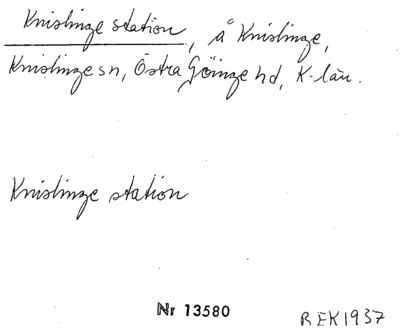 Knislinge station, å Knislinge,
Knislinge sn, Östra Göinge hd, K-län.
Knislinge station
Nr 13580
REK1937